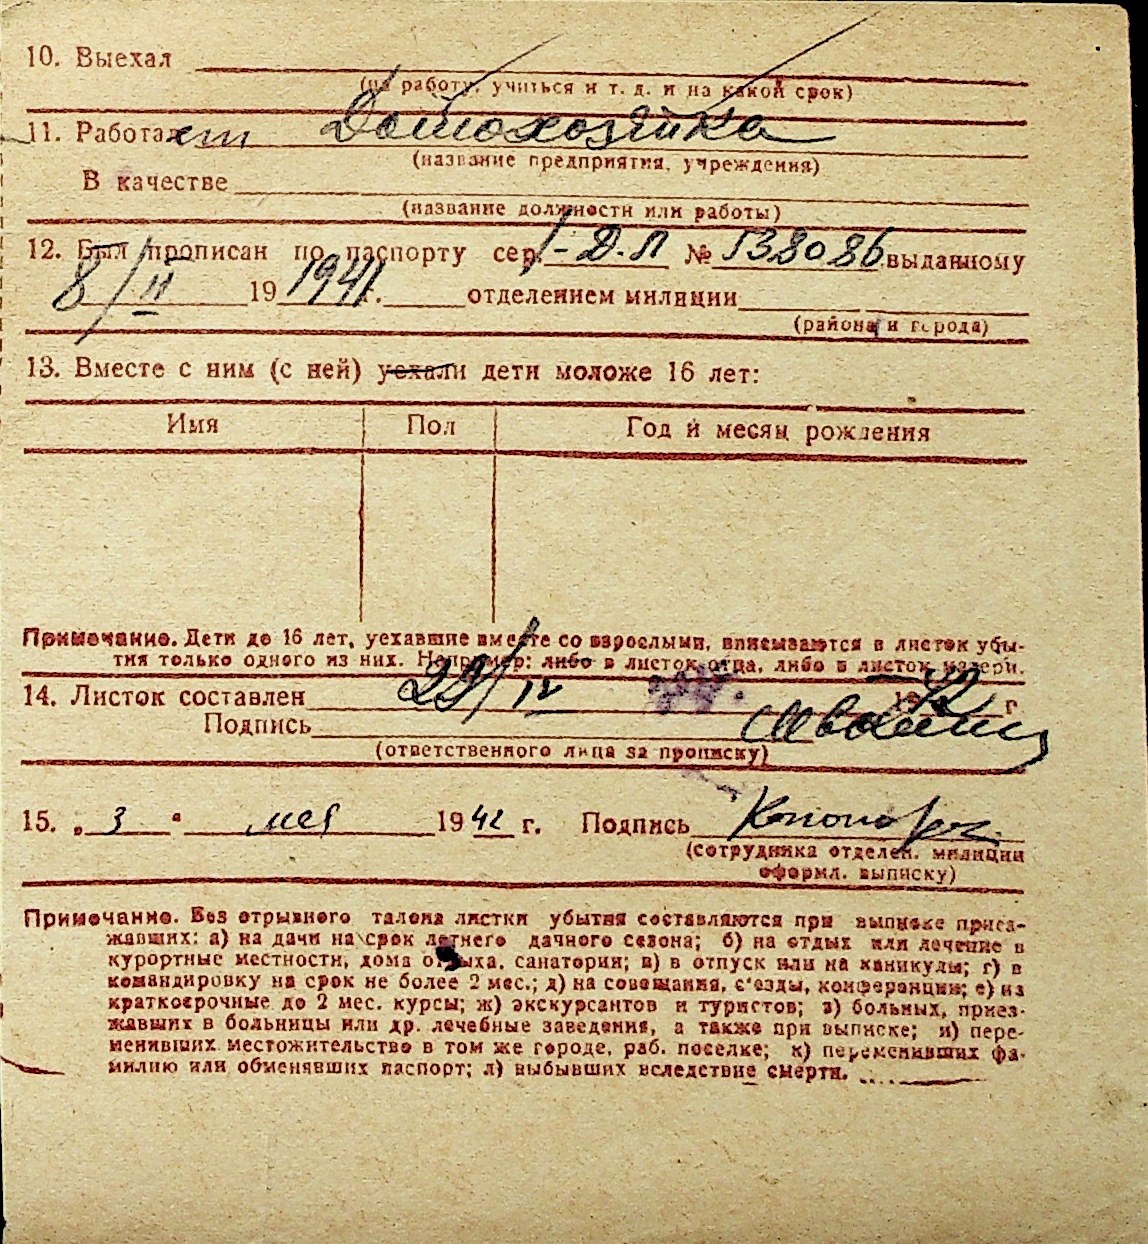 10. Выехал
(на работу, учиться и т. д. и на какой срок)
11. Работает Домохозяйка
(название предприятия, учреждения)
В качестве
(название должности или работы)
12. Был прописан по паспорту сер. I-Д.П № 538086 выданному
8/II 19 1941 г. отделением милиции
(района и города)
13. Вместе с ним (с ней) уехали дети моложе 16 лет:
Имя Пол Год и месяц рождения
Примечание. Дети до 16 лет, уехавшие вместе со взрослыми, вписываются в листок убы-
тия только одного из них. Например: либо в листок отца, либо в листок матери.
14. Листок составлен 29/IV 1942 г
Подпись
(ответственного лица за прописку)
15. „ 3 " мая 1942 г. Подпись
(сотрудника отделен. милиции
оформл. выписку)
Примечание. Без отрывного талона листки убытия составляются при выписке приез-
жавших: а) на дачи на срок летнего дачного сезона; б) на отдых или лечение в
курортные местности, дома отдыха, санатории; в) в отпуск или на каникулы; г) в
командировку на срок не более 2 мес.; д) на совещания, с'езды, конференции; е) на
краткосрочные до 2 мес. курсы; ж) экскурсантов и туристов; з) больных, приез-
жавших в больницы или др. лечебные заведения, а также при выписке; и) пере-
менивших местожительство в том же городе, раб. поселке; к) переменивших фа-
милию или обменявших паспорт; л) выбывших вследствие смерти.